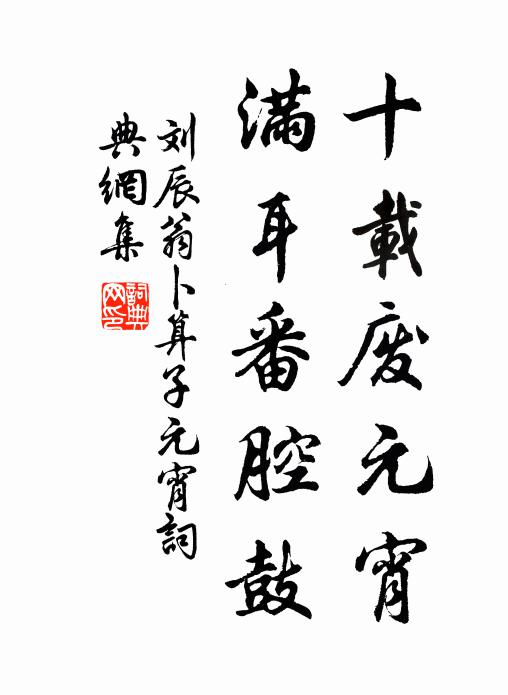 十載废元宵
滿耳番腔鼓
刘辰翁卜算子元宵詞
典網集
詞典
网印